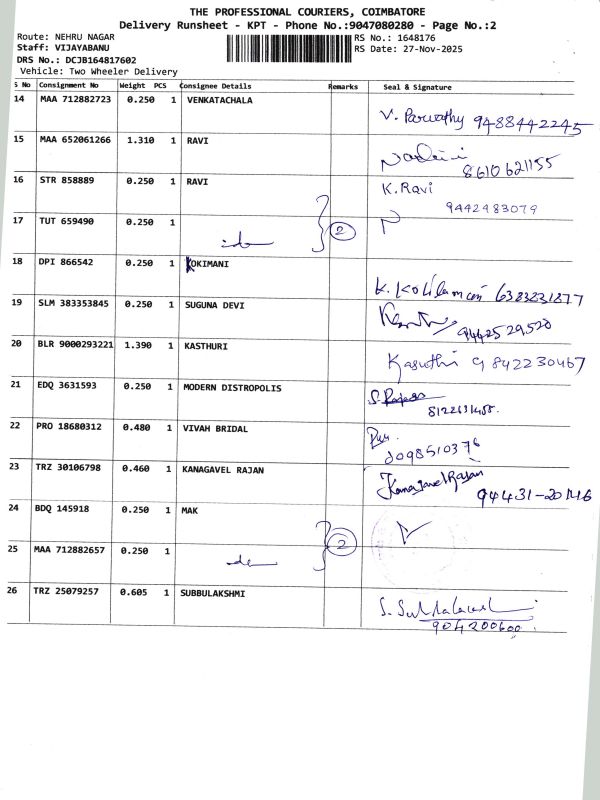 THE PROFESSIONAL COURIERS, COIMBATORE
Delivery Runsheet - KPT - Phone No.:9047080280 - Page No.:2
Route: NEHRU NAGAR
RS No.: 1648176
Staff: VIJAYABANU
RS Date: 27-Nov-2025
DRS No.: DCJB164817602
Vehicle: Two Wheeler Delivery
S No Consignment No Weight PCS Consignee Details Remarks Seal & Signature
14 MAA 712882723 0.250 1 VENKATACHALA
V. Parvathy 9488442245
15 MAA 652061266 1.310 1 RAVI
8610621155
16 STR 858889 0.250 1 RAVI
K. Ravi
9442483079
17 TUT 659490 0.250 1
2
18 DPI 866542 0.250 1 KOKIMANI
6383231877
19 SLM 383353845 0.250 1 SUGUNA DEVI
9442529520
20 BLR 9000293221 1.390 1 KASTHURI
Kasuthi 9842230467
21 EDQ 3631593 0.250 1 MODERN DISTROPOLIS
22 PRO 18680312 0.480 1 VIVAH BRIDAL
23 TRZ 30106798 0.460 1 KANAGAVEL RAJAN
Kanagavel Rajan
94431-20146
24 BDQ 145918 0.250 1 MAK
2
25 MAA 712882657 0.250 1
26 TRZ 25079257 0.605 1 SUBBULAKSHMI
904200600